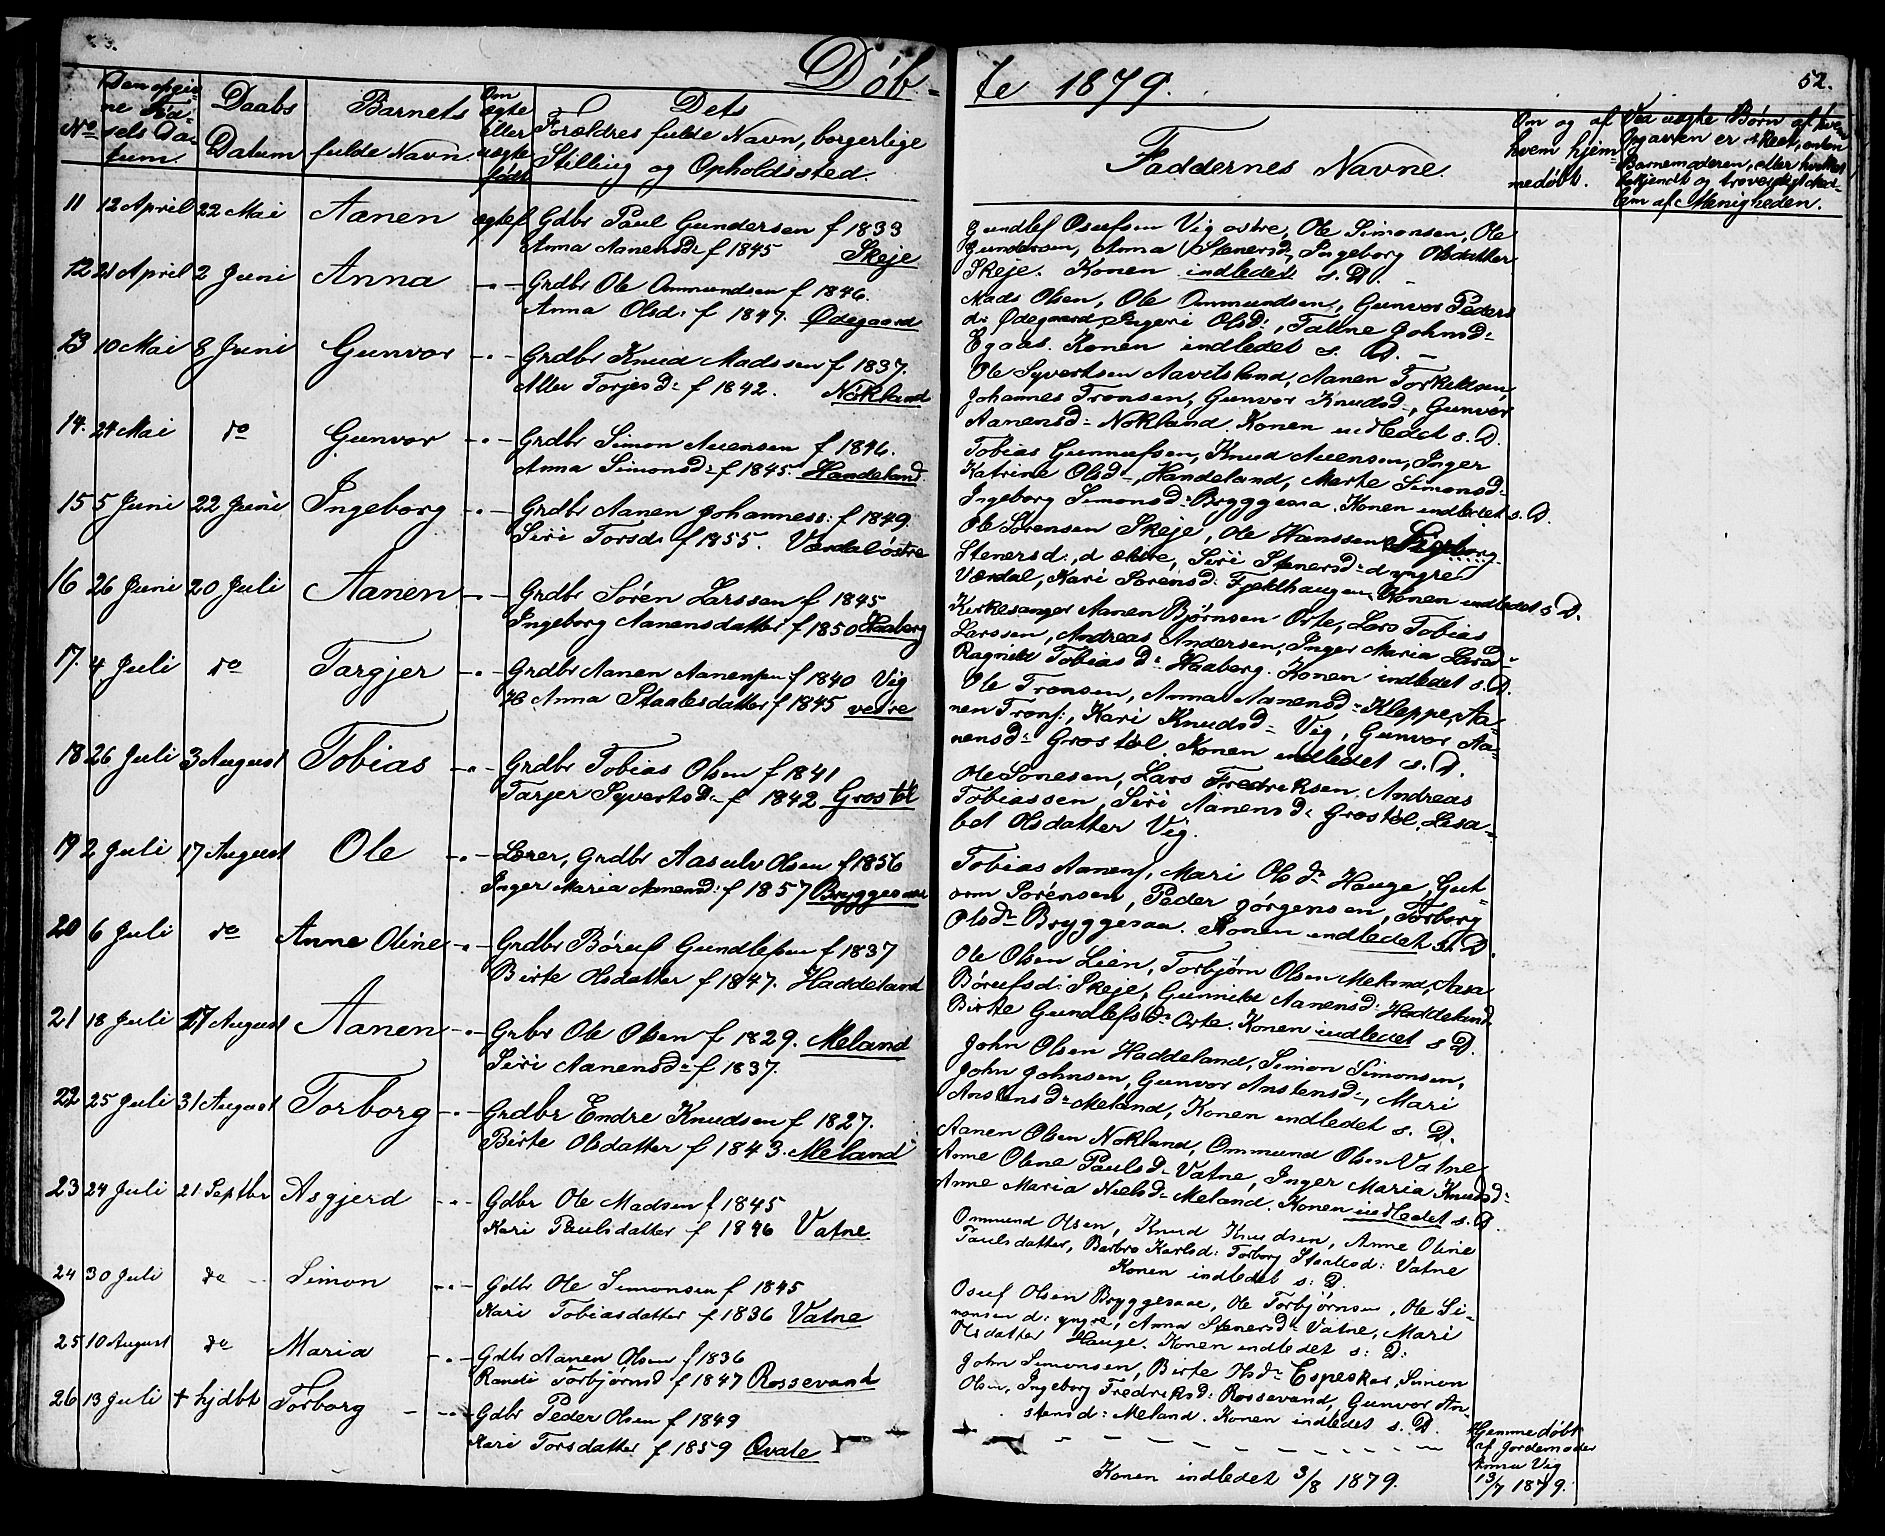 Døb-
te 1879.
52.
No
Den opgiv
ne Fød-
sels Da-
tum.
Daabs
Datum
Barnets
fulde Navn.
Om
ægte
eller
uægte
født
Dets
Forældres fulde Navn, borgerlige
Stilling og Opholdssted.
Faddernes Navne.
Om og af
hvem hjem-
medøbt.
Ved uægte Børn af hvem
Angaven er skeet, enten
Barnemoderen, eller hvilket
bekjendt og troværdigt Med-
lem af Menigheden.
11 12 April 22 Mai Aanen ægtef Gdbr Paul Gundersen f 1833
Anna Aanensd: f 1845 Skeje
Gundlef Osufsen Vig østre, Ole Simonsen, Ole
Gundersen, Anna Stenersd, Ingeborg Olsdatter
Skeje. Konen indledet s. D. -
12 21 April 2 Juni Anna -"- Grdbr Ole Ommundsen f 1846.
Anna Olsd: f 1847. Ødegaard
Mads Olsen, Ole Ommundsen, Gunvor Peders
d: Ødegaard, Ingeri Olsd:, Tallne Johnsd-
Egaas. Konen indledet s. D. -
13 10 Mai 8 Juni Gunvor -"- Grdbr Knud Madssen f 1837.
Aller Torjesd: f 1842. Nøkland
Ole Syvertsen Aavitsland, Aanen Torkildsen,
Johannes Tronsen, Gunvor Knudsd-, Gunvor
Aanensd- Nøkland. Konen indledet s. D.
14. 24 Mai do Gunvor -"- Grdbr Simon Auensen f 1846.
Anna Simonsd: f 1845. Handeland.
Tobias Gunnufsen, Knud Auensen, Inger
Katrine Olsd-, Handeland, Marte Simonsd-
Ingeborg Simonsd- Bryggesaa. Konen indledet s. D.
15 5 Juni 22 Juni Ingeborg -"- Grdbr Aanen Johanness: f 1849.
Siri Torsd: f 1855. Værdal østre
Ole Sørensen Skeje, Ole Hanssen, Ingeborg
Stenersd:, d ældre, Siri Stenersd- d yngre
Værdal, Kari Sørensd: Fjeldhaugen. Konen indledet s D.
16 26 Juni 20 Juli Aanen -"- Grdbr Søren Larssen f 1845,
Ingeborg Aanensdatter f 1850 Haaberg
Kirkesanger Aanen Bjørnsen Orte, Lars Tobias
Larssen, Andreas Andersen, Inger Maria Larsd-
Ragnild Tobiasd- Haaberg. Konen indledet s. D.
17. 4 Juli do Targjer -"- Grdbr Aanen Aanensen f 1840 Vig
H Anna Staalesdatter f 1845 vestre
Ole Tronsen, Anna Aanensd- Kleppe, Aa-
nen Trons:, Kari Knudsd- Vig, Gunvor Aa-
nensd- Grostøl. Konen indledet s. D.
18 26 Juli 3 August Tobias -"- Grdbr Tobias Olsen f 1841
Tarjer Syvertsd- f 1842 Grostøl
Ole Sonesen, Lars Fredriksen, Andreas
Tobiassen, Siri Aanensd: Grostøl, Lisa-
bet Olsdatter Vig.
19 2 Juli 17 August Ole -"- Lærer, Grdbr Aasulv Olsen f 1856
Inger Maria Aanensd: f 1857 Bryggesaa
Tobias Aanens, Mari Olsd- Hauge, Gut-
orm Sørensen, Peder Jørgensen, Torborg
Olsd- Bryggesaa. Konen indledet s. D.
20 6 Juli do Anne Oline -"- Grdbr Børuf Gundlefsen f 1837
Birte Olsdatter f 1847. Haddeland
Ole Olsen Lien, Torbjørn Olsen Meland, Aasa
Børufsd: Skeje, Gunnild Aanensd: Haddeland
Birte Gundlefsd- Orte. Konen indledet s D.
21 18 Juli 17 August Aanen -"- Grbr Ole Olsen f 1829. Meland
Siri Aanensd- f 1837.
John Olsen Haddeland, Simon Simonsen,
John Johnsen, Gunvor Anstensd-, Mari
Anstensd- Meland, Konen indledet s. D.
22 25 Juli 31 August Torborg -"- Grdbr Endre Knudsen f 1827.
Birte Olsdatter f 1843. Meland
Aanen Olsen Nøkland, Ommund Olsen Vatne
Anne Oline Paulsd- Vatne, Inger Maria Knudsd-
Anne Maria Nielsd- Meland. Konen indledet s. D.
23 24 Juli 21 Septbr Asgjerd -"- Gdbr Ole Madsen f 1845
Kari Paulsdatter f 1846 Vatne
Ommund Olsen, Knud Knudsen, Anne Oline
Paulsdatter, Barbro Karlsd: Torborg Staalesd: Vatne
Konen indledet s: D.
24 30 Juli do Simon -"- Gdbr Ole Simonsen f 1845
Kari Tobiasdatter f 1836 Vatne
Osuf Olsen Bryggesaae, Ole Torbjørnsen, Ole Si-
monsen d: yngre, Anna Stenersd- Vatne, Mari
Olsdatter Hauge. Konen indledet s: D:
25 10 August do Maria -"- Gdbr Aanen Olsen f 1836
Randi Torbjørnsd f 1847 Rossevand
John Simonsen, Birte Olsd- Espeskar, Simon
Olsen, Ingeborg Fredriksd: Rossevand, Gunvor An-
stensd: Meland. Konen indledet s. D.
26 13 Juli + hjdbt Torborg -"- Gdbr Peder Olsen f 1849
Kari Torsdatter f 1859 Qvale
Konen indledet 3/8 1879.
Hjemmedøbt
af Jordemoder
Anna Vig
13/7 1879.